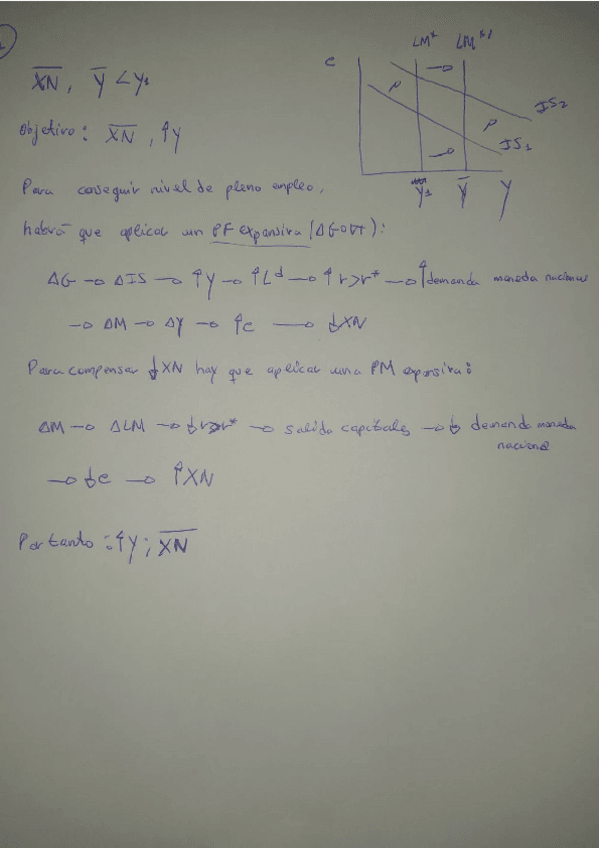 LM* LM*'
e
X̅N̅, Y̅ < Y₁
IS₂
Objetivo: X̅N̅, ↑Y
IS₁
Y₁ Y̅ Y
Para conseguir nivel de pleno empleo,
habrá que aplicar un PF expansiva (ΔG o ∇T):
ΔG → ΔIS → ↑Y → ↑Lᵈ → ↑r>r* → ↑demanda moneda nacional
→ ΔM → ΔY → ↑e → ↓XN
Para compensar ↓XN hay que aplicar una PM expansiva:
ΔM → ΔLM → salida capitales → ↓ demanda moneda
nacional
→ ↓e → ↑XN
Por tanto: ↑Y; X̅N̅